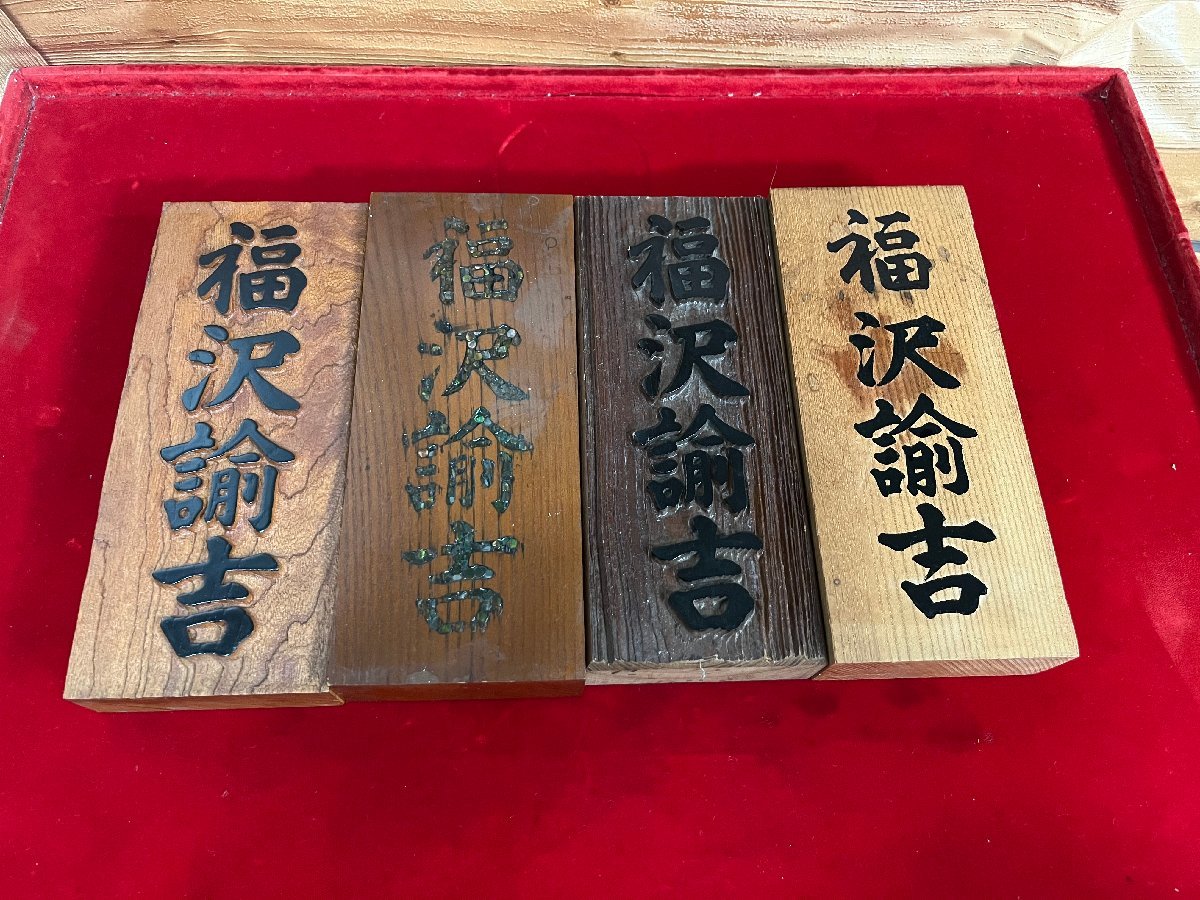 福沢諭吉
福沢諭吉
福沢諭吉
福沢諭吉